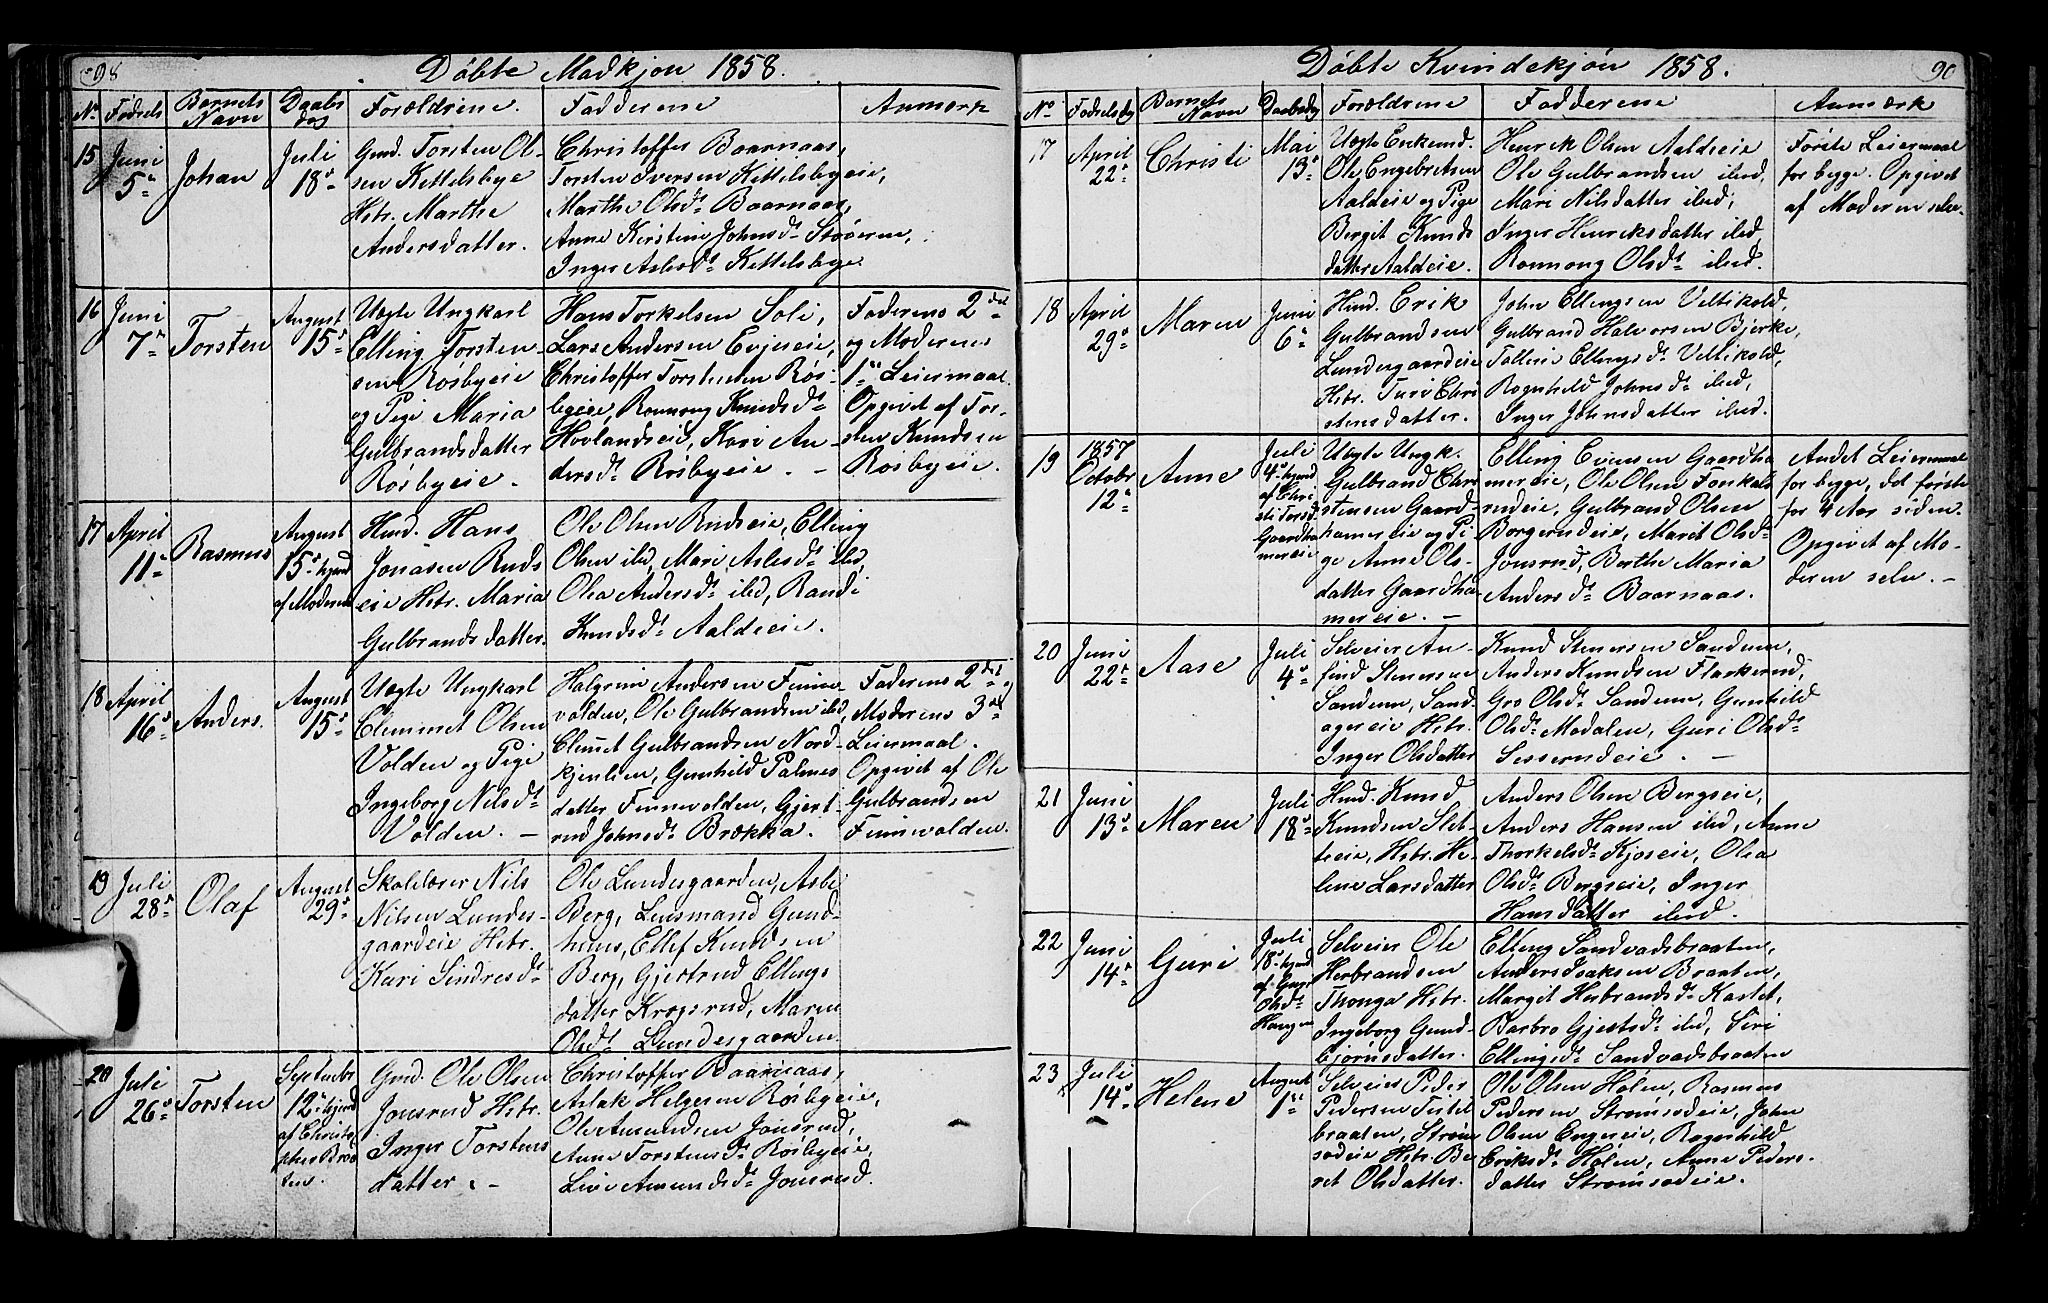 98
Döbte Madkjön 1858.
No Födsels Barnets Navn Daabs dag Forældrene. Fadderene Anmerk
15 Juni 5te Johan Juli 18de
Gmd. Torsten Ol-
sen Kittelsbye
Hstr. Marthe
Andersdatter.
Christoffer Baarnaas,
Torsten Iversen Kittelsbyeie,
Marthe Olsdt Baarnaas,
Anne Kirstine Johnsdt Stöeren,
Inger Aslesdt Kittelsbye.
16 Juni 7de Torsten August 15de
Uegte Ungkarl
Elling Torsten-
sen Rösbyeie
og Pige Maria
Gulbrandsdatter
Rösbyeie.
Hans Torkelsen Soli,
Lars Andersen Evjueie,
Christoffer Torstensen Rös-
byeie, Ronnong Knudsdt
Hovlandseie, Kari An-
dersdt Rösbyeie. -
Faderens 2det
og Moderens
1ste Leiermaal.
Opgivet af Tor-
sten Knudsen
Rösbyeie.
17 April 11te Rasmus August 15de hjemd af Moderen
Husd. Hans
Jonasen Ruds
eie Hstr. Maria
Gulbrandsdatter.
Ole Olsen Rudseie, Elling
Olsen ibd, Mari Aslesdt ibd,
Olea Andersdt ibd, Randi
Knudsdt Aaldseie.
18 April 16de Anders. August 15de
Uegte Ungkarl
Clemmet Olsen
Volden og Pige
Ingeborg Nilsdt
Volden. -
Halgrim Andersen Finne-
volden, Ole Gulbrandsen ibd,
Clemet Gulbrandsen Nord-
kjenlien, Gunhild Palmes
datter Finnevolden, Gjert-
rud Johnsdt Brækka.
Faderens 2det og
Moderens 3de
Leiermaal.
Opgivet af Ole
Gulbrandsen
Finnevolden.
19 Juli 28de Olaf August 29de
Skolelærer Nils
Nilsen Lundes-
gaardeie Hstr.
Kari Sindresdt
Ole Lundesgaarden, Asle
Berg, Lensmand Gund-
hus, Ellef Knudsen
Berg, Gjertrud Ellings
datter Krogsrud, Maren
Olsdt Lundesgaarden
20 Juli 26de Torsten Septembr 12te hjemd af Christo pher Bræ ten.
Gmd. Ole Olsen
Jonsrud Hstr.
Inger Torstens
datter. -
Christoffer Baarnaas,
Aslak Helgesen Rösbyeie,
Ole Amundsen Jonsrud,
Anne Torstensdt Rösbyeie,
Live Amundsdt Jonsrud.
90
Döbte Kvindekjön 1858.
No Fodselsdg Barnets Navn Daabsdag Forældrene Fadderene Anmærk
17 April 22de Christi Mai 13de
Uegte Enkemd.
Ole Engebretsen
Aaldeie og Pige
Bergit Knuds
datter Aaldeie.
Henrik Olsen Aaldeie
Ole Gulbrandsen ibed,
Mari Nilsdatter ibed,
Inger Henriksdatter ibed
Ronnong Olsdt ibed.
Förste Leiermaal
for begge. Opgivet
af Moderen selv.
18 April 29de Maren Juni 6te
Husd. Erik
Gulbrandsen
Lundesgaardeie
Hstr. Turi Chri
stensdatter.
John Ellingsen Veltikold,
Gulbrand Halvorsen Bjerke,
Tolleie Ellingsdt Veltikold,
Rognhild Johnsdt ibed,
Inger Johnsdatter ibed.
19 1857 Octobr 12te Anne Juli 4de hjemd af Chri sti Torsd. Gaardha mereie
Uegte Ungk.
Gulbrand Chri
stensen Gaard-
hamereie og Pi
ge Anne Ols-
datter Gaardha
mereie. -
Elling Evensen Gaardha
mereie, Ole Olsen Fonkals
rudeie, Gulbrand Olsen
Borgerudeie, Marit Olsdt
Jonsrud, Berthe Maria
Andersdt Baarnaas.
Andet Leiermaal
for begge, det förste
for 4 Aar siden.
Opgivet af Mo-
deren selv. -
20 Juni 22de Aase Juli 4de
Selveier An-
find Stenersen
Sandum, Sand-
agereie Hstr.
Inger Olsdatter
Knud Stenersen Sandum,
Anders Knudsen Flaskerud,
Gro Olsdt Sandum, Gunhild
Olsdt Modalen, Guri Olsdt
Sesserudeie. -
21 Juni 13de Maren Juli 18de
Husd. Knud
Knudsen Slet-
teeie, Hstr. He-
lene Larsdatter
Anders Olsen Bergseie,
Anders Hansen ibd, Anne
Thorkelsdt Kjoseie, Olea
Olsdt Bergseie, Inger
Hansdatter ibed.
22 Juni 14de Guri Juli 18de hjemd af Guri Olsdt Haugen
Selveier Ole
Herbrandsen
Thonga Hstr.
Ingeborg Gund-
björnsdatter.
Elling Sandvadsbraaten,
Anders Isaksen Braaten,
Margit Herbrandsdt Kastet,
Barbro Gjestsdt ibd, Siri
Ellingsdt Sandvadsbraaten
23 Juli 14de Helene August 1ste
Selveier Peder
Pedersen Tistel
braaten, Ström
sodeie Hstr. Be
ret Olsdatter.
Ole Olsen Hölen, Rasmus
Pedersen Strömsodeie, John
Olsen Engereie, Rognhild
Eriksdt Hölen, Anne Peders-
datter Strömsodeie.